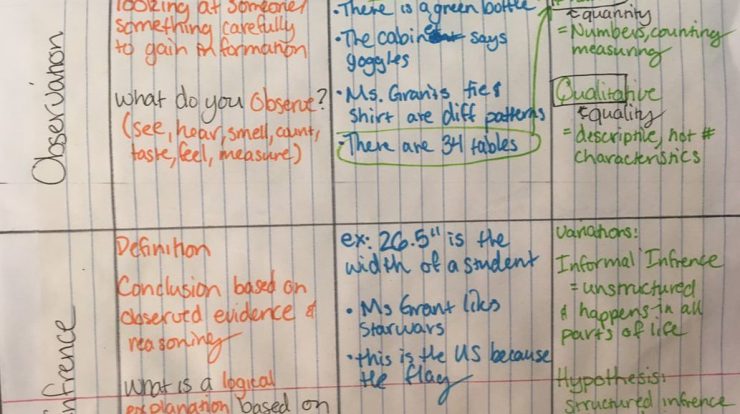 Observation
looking at someone/
something carefully
to gain information
what do you Observe?
(see, hear, smell, count,
taste, feel, measure)
•There is a green bottle
•The cabinet says
goggles
•Ms. Grants tie &
shirt are diff patterns
•There are 34 tables
quantity
= Numbers, counting
measuring
Qualitative
quality
= descriptie, not #
characteristics
infrence
Definition
Conclusion based on
observed evidence &
reasoning
What is a logical
explanation based on
ex: 26.5" is the
width of a student
• Ms Grant liks
Starwars
• this is the US because
the flag
Variations:
Informal Infrence
= unstructured
& happens in all
parts of life
Hypothesis:
structured infrence